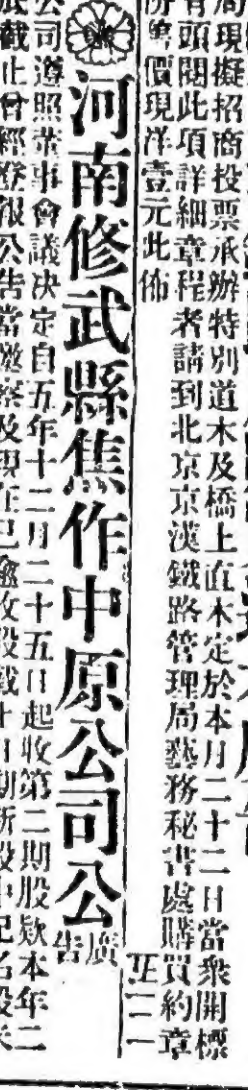 局現擬招商投票承辦特別道木及橋上直木定於本月二十二日當衆開標
有頭閱此項詳細章程者請到北京京漢鐵路管理局藝務秘書處購買約章
所售價現洋壹元此佈
正二一
河南修武縣焦作中原公司公
廣告
公司遵照董事會議決定自五年十二月二十五日起收第二期股款本年二
底截止曾經登報公告當邀察及現在已繳收股截十日期所股中記名股未